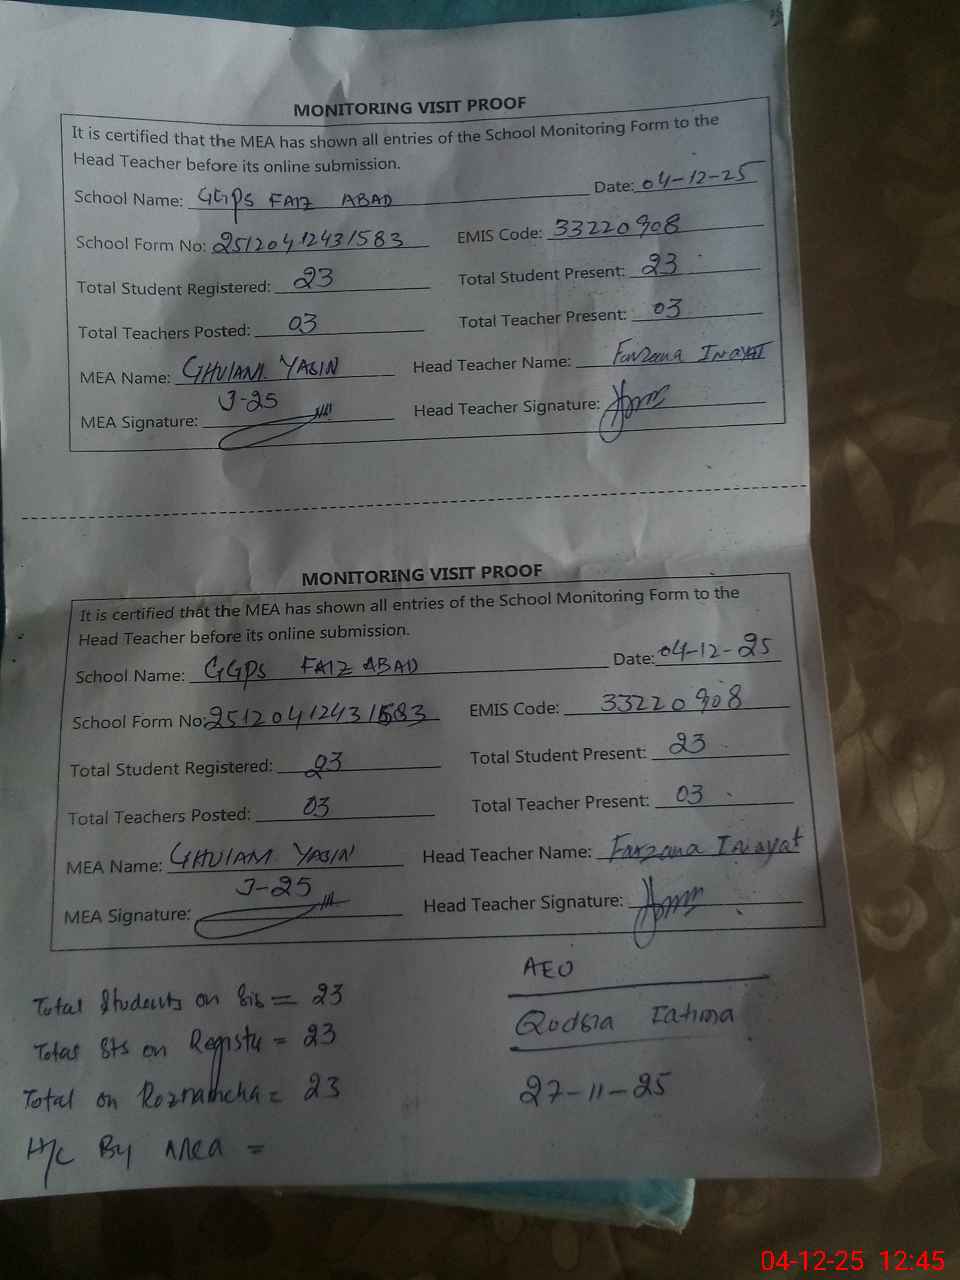 MONITORING VISIT PROOF
It is certified that the MEA has shown all entries of the School Monitoring Form to the
Head Teacher before its online submission.
School Name: GGPS FAIZ ABAD Date: 04-12-25
School Form No: 25120412431583 EMIS Code: 33220908
Total Student Registered: 23 Total Student Present: 23
Total Teachers Posted: 03 Total Teacher Present: 03
MEA Name: GHULAM YASIN Head Teacher Name: Farzana Inayat
J-25
MEA Signature: Head Teacher Signature:
MONITORING VISIT PROOF
It is certified that the MEA has shown all entries of the School Monitoring Form to the
Head Teacher before its online submission.
School Name: GGPS FAIZ ABAD Date: 04-12-25
School Form No: 25120412431583 EMIS Code: 33220908
Total Student Registered: 23 Total Student Present: 23
Total Teachers Posted: 03 Total Teacher Present: 03
MEA Name: GHULAM YASIN Head Teacher Name: Farzana Inayat
J-25
MEA Signature: Head Teacher Signature:
AEO
Total Students on Sis = 23
Qudsia Fatima
Total Sts on Register = 23
27-11-25
Total on Roznamcha = 23
H/C By Mea =
04-12-25 12:45